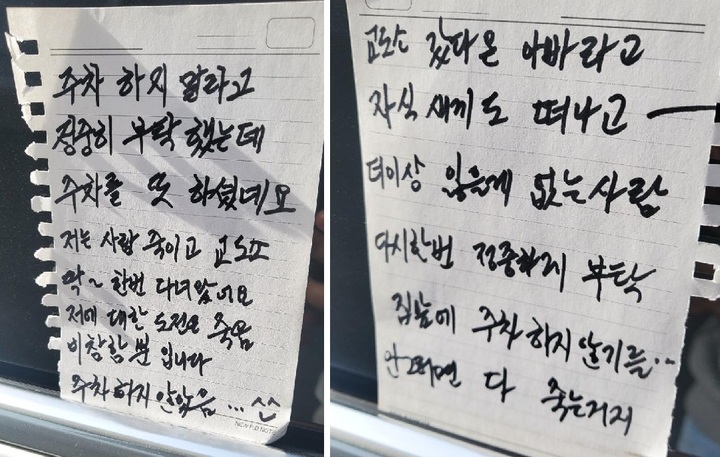 주차 하지 말라고
정중히 부탁 했는데
주차를 또 하셨데요
저는 사람 죽이고 교도소
딱~ 한번 다녀왔어요
저에 대한 도전은 죽음
이창할 뿐 입니다
주차하지 안았음...^^
교도소 갔다온 아빠라고
자식 새끼도 떠나고 —
더이상 잃을게 없는사람
다시한번 정중하게 부탁
집앞에 주차 하지 않기를..
안그러면 다 죽는거지